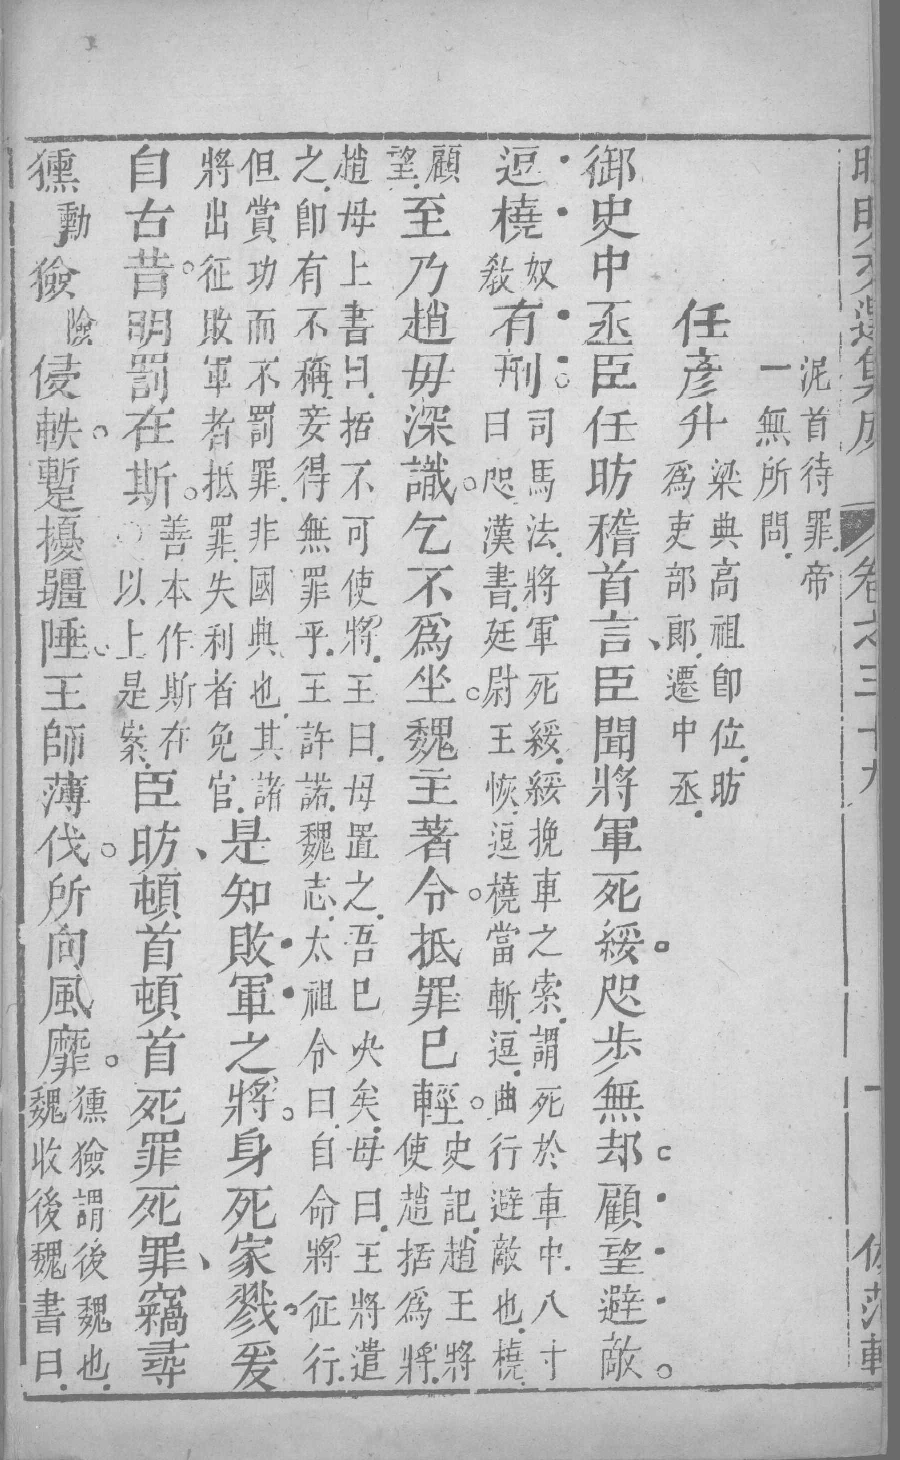 昭明文選集成　卷之三十九　一　范軒
泥首待罪帝
一無所問
任彥升
梁典高祖卽位昉
爲吏部郎遷中丞
御史中丞臣任昉稽首言臣聞將軍死綏咫步無却顧望避敵
逗橈
奴
敎
有刑
司馬法將軍死綏綏挽車之索謂死於車中八寸
曰咫漢書廷尉王恢逗橈當斬逗曲行避敵也橈
顧
望
至乃趙母深識乞不爲坐魏主著令抵罪已輕
史記趙王將
使趙括爲將
趙母上書曰括不可使將王曰母置之吾已决矣母曰王將遣
之卽有不稱妾得無罪乎王許諾魏志太祖令曰自命將征行
但賞功而不罰罪非國典也其諸
將出征敗軍者抵罪失利者免官
是知敗軍之將身死家戮爰
自古昔明罰在斯
善本作斯在
以上是案
臣昉頓首頓首死罪死罪竊尋
獯勳獫險侵軼蹔擾疆陲王師薄伐所向風靡
獯獫謂後魏也
魏收後魏書曰